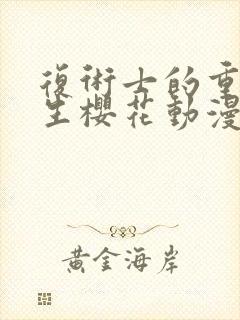 復術士的重
生櫻花動漫
黃金海岸